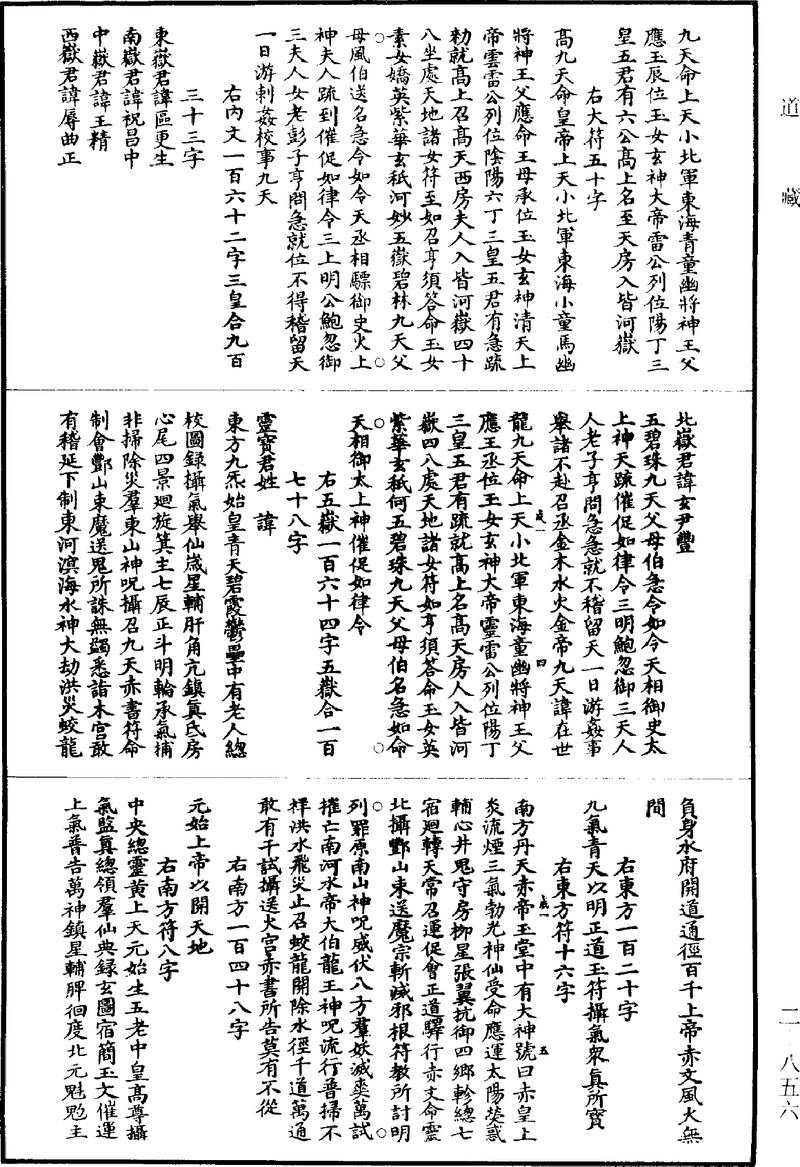 道藏
九天命上天小北軍東海青童幽將神王父
應玉辰位玉女玄神大帝雷公列位陽丁三
皇五君有六公高上名至天房入皆河嶽
右大符五十字
高九天命皇帝上天小北軍東海小童馬幽
將神王父應命王母承位玉女玄神清天上
帝雲雷公列位陰陽六丁三皇五君有急疏
勑就高上召髙天西房夫人入皆河嶽四十
八坐處天地諸女符至如召亨須答命玉女
素女嬌英紫華玄秖河妙五嶽碧林九天父
母風伯送名急令如令天丞相驃御史火上
神夫入疏到催促如律令三上明公鮑忽御
三夫人女老彭子亨問急就位不得稽留天
一日游刺姦校事九天
右內文一百六十二字三皇合九百
三十三字
東嶽君諱區更生
南嶽君諱祝昌中
中嶽君諱王精
西嶽君諱辱曲正
北嶽君諱玄尹豐
五碧珠九天父母伯急令如今天相御史太
上神天疏催促如律令三明鮑忽御三天人
人老子亨問急急就不稽留天一日游姦事
舉諸不赴召丞金木水火金帝九天諱在世
龍九天命上天小北軍東海童幽將神王父
應王丞位玉女玄神大帝靈雷公列位陽丁
三皇五君有疏就高上名高天房人入皆河
嶽四八處天地諸女符如亨須答命玉女英
紫華玄秖何五碧珠九天父母伯名急如命
天相御太上神催促如律令
右五嶽一百六十四字五嶽合一百
七十八字
靈寶君姓　諱
東方九炁始皇青天碧霞鬱壘中有老人總
校圖錄攝氣舉仙歲星輔肝角亢鎮真氐房
心尾四景廻旋箕主七辰正斗明輪承氣捕
非掃除災羣東山神呪攝召九天赤書符命
制會酆山東魔送鬼所誅無蠲悉詣木宮敢
有稽延下制東河溟海水神大劫洪災蛟龍
負身水府開道通徑百千上帝赤文風火無
間
右東方一百二十字
九氣青天以明正道玉符攝氣衆真所寶
右東方符十六字
南方丹天赤帝玉堂中有大神號曰赤皇上
炎流煙三氣勃光神仙受命應運太陽熒惑
輔心井鬼守房柳星張翼抗御四鄉軫總七
宿廻轉天常召運促會正道驛行赤文命靈
北攝酆山束送魔宗斬滅邪根符教所討明
列罪原南山神呪威伏八方羣妖滅爽萬試
摧亡南河水帝大伯龍王神呪流行普掃不
祥洪水飛災止召蛟龍開除水徑千道萬通
敢有干試攝送火宮赤書所告莫有不從
右南方一百四十八字
元始上帝以開天地
右南方符八字
中央總靈黃上天元始生五老中皇高尊攝
氣監真總領羣仙典録玄圖宿簡玉文催運
上氣普告萬神鎮星輔脾徊度北元魁主
二 八五六